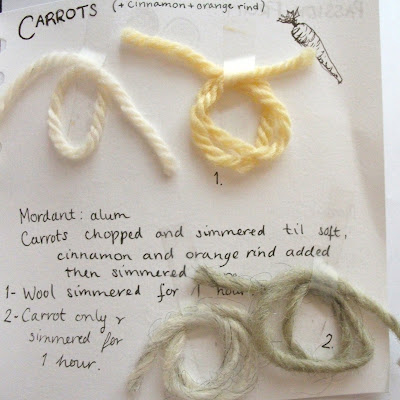 CARROTS (+ cinnamon + orange rind)
1.
Mordant: alum
Carrots chopped and simmered til soft,
cinnamon and orange rind added
then simmered
1- Wool simmered for 1 hour.
2- Carrot only &
simmered for
1 hour.
2.